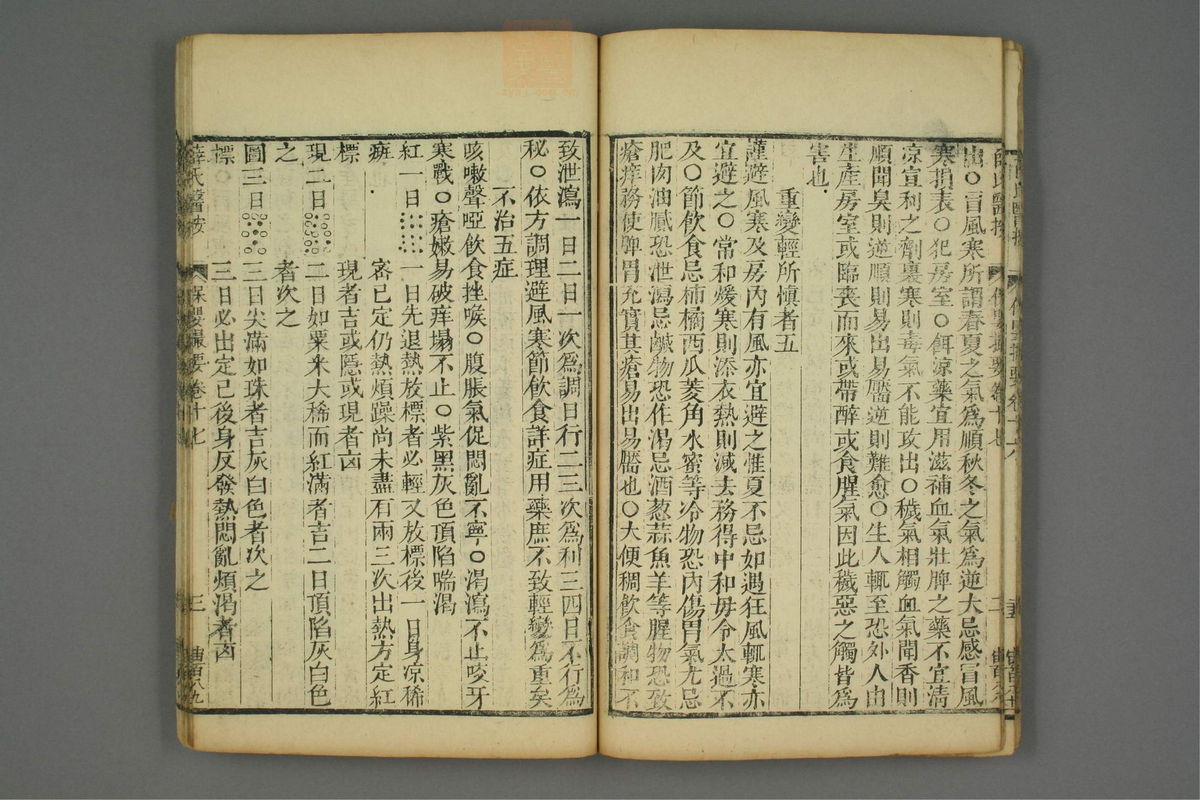 薛氏醫按 保嬰撮要卷十七 二
出○冒風寒所謂春夏之氣為順秋冬之氣為逆大忌感冒風
寒損表○犯房室○餌涼藥宜用滋補血氣壯脾之藥不宜淸
凉宜利之劑裏寒則毒氣不能攻出○穢氣相觸血氣聞香則
順聞臭則逆順則易出易靨逆則難愈○生人輒至恐外人由
生產房室或臨喪而來或帶醉或食腥氣因此穢惡之觸皆為
害也
重變輕所慎者五
謹避風寒及房內有風亦宜避之惟夏不忌如遇狂風輒寒亦
宜避之○常和煖寒則添衣熱則減去務得中和毋令太過不
及○節飲食忌柿橘西瓜菱角水蜜等冷物恐內傷胃氣尤忌
肥肉油膩恐泄瀉忌鹹物恐作渴忌酒葱蒜魚羊等腥物恐致
瘡痒務使脾胃充實其瘡易出易靨也○大便稠飲食調和不
致泄瀉一日二日一次為調日行二三次為利三四日不行為
秘○依方調理避風寒節飲食詳症用藥庶不致輕變為重矣
不治五症
咳嗽聲啞飲食挫喉○腹脹氣促悶亂不寧○渴瀉不止咬牙
寒戰○瘡嫩易破痒塌不止○紫黑灰色頂陷喘渴
紅一日 一日先退熱放標者必輕又放標後一日身凉稀
斑 密已定仍熱煩躁尚未盡有兩三次出熱方定紅
標 現者吉或隱或現者凶
現二日 二日如粟米大稀而紅滿者吉二日頂陷灰白色
之 者次之
圖三日 三日尖滿如珠者吉灰白色者次之
標 三日必出定已後身反發熱悶亂煩渴者凶
薛氏醫按 保嬰撮要卷十七 三